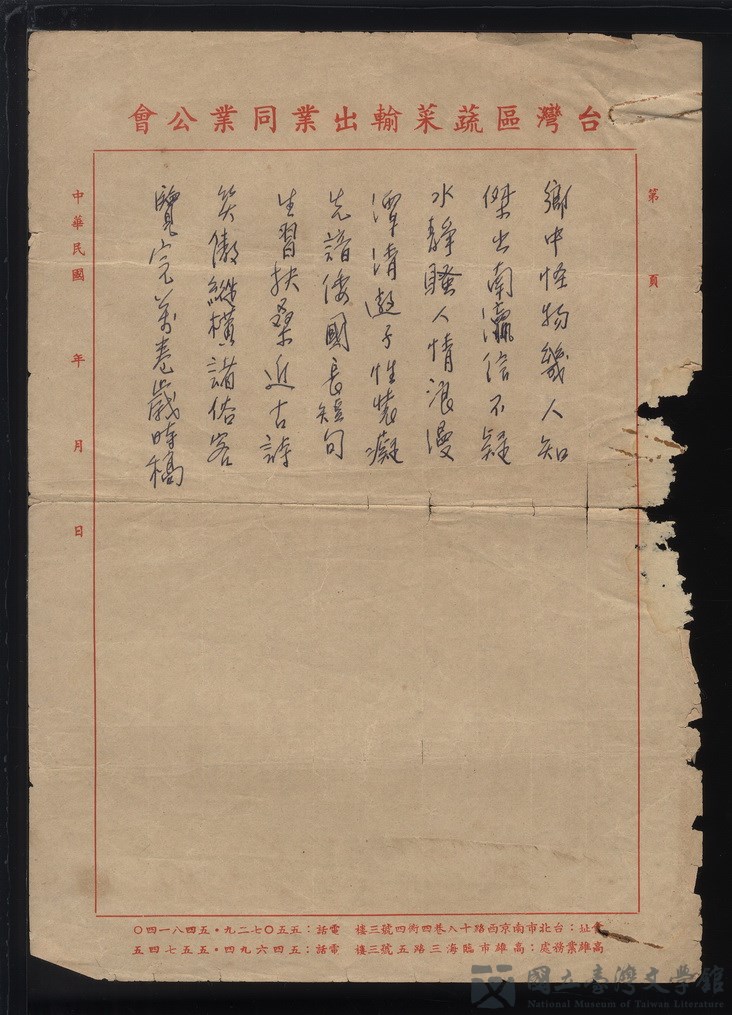 台灣區蔬菜輸出業同業公會
第　頁
鄉中怪物幾人知
傑出南瀛信不疑
水靜騷人情浪漫
潭清遊子性裝癡
先諳倭國長短句
生習扶桑近古詩
笑傲縱橫諸俗客
覽完萬卷歲時犒
中華民國　年　月　日
會址：台北市南京西路十八巷四衖四號三樓　電話：五五〇七二九・五四八一四〇
高雄業務處：高雄市臨海三路五號三樓　電話：五四六九四・五五七四五
國立臺灣文學館
National Museum of Taiwan Literature